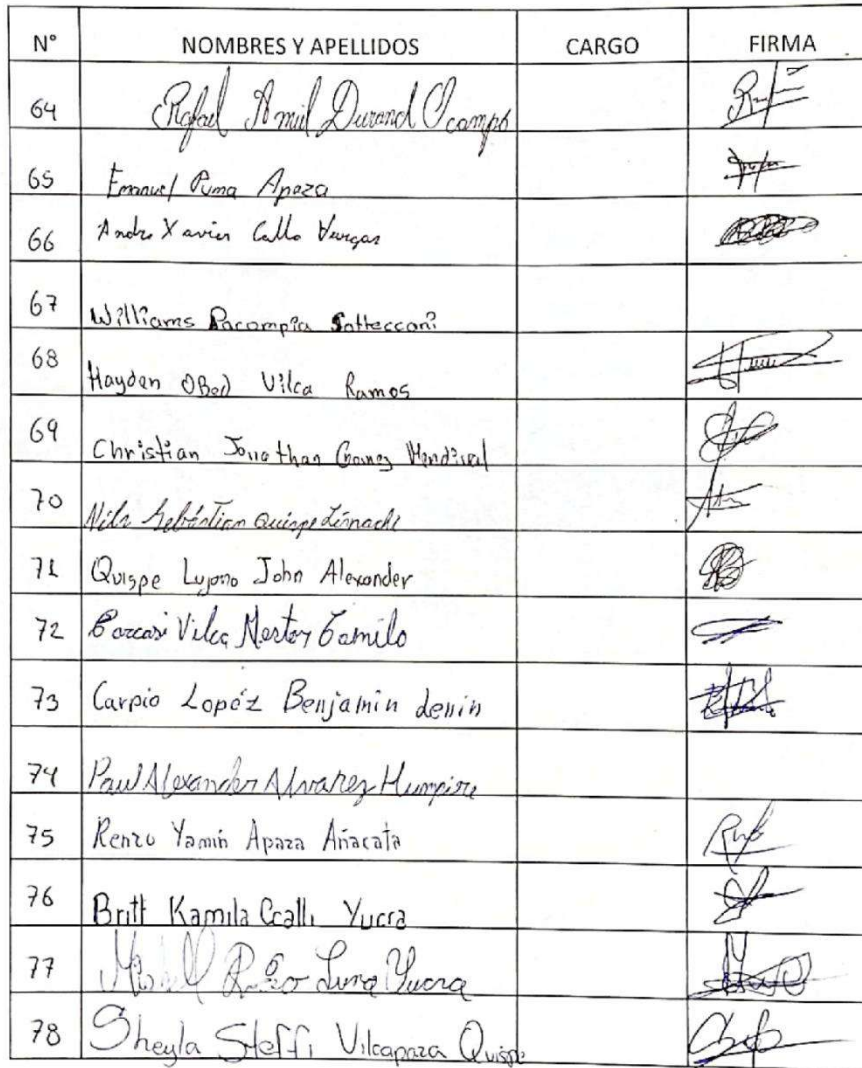 N° NOMBRES Y APELLIDOS CARGO FIRMA
64 Rafael Amil Durand Ocampo
65 Emanuel Puma Apaza
66 Andre Xavier Callo Vargas
67 Williams Pacompia
68 Hayden OBed Vilca Ramos
69 Christian Jonathan Gomez Mendival
70 Sebastian Quispe
71 Quispe Lujano John Alexander
72 Carcasi Vilca Nestor Camilo
73 Carpio Lopéz Benjamin Lenin
74 Paul Alexander Alvarez Humpire
75 Renzo Yamin Apaza Añacata
76 Britt Kamila Ccalli Yucra
77 Luna Yucra
78 Sheyla Steffi Vilcapaza Quispe